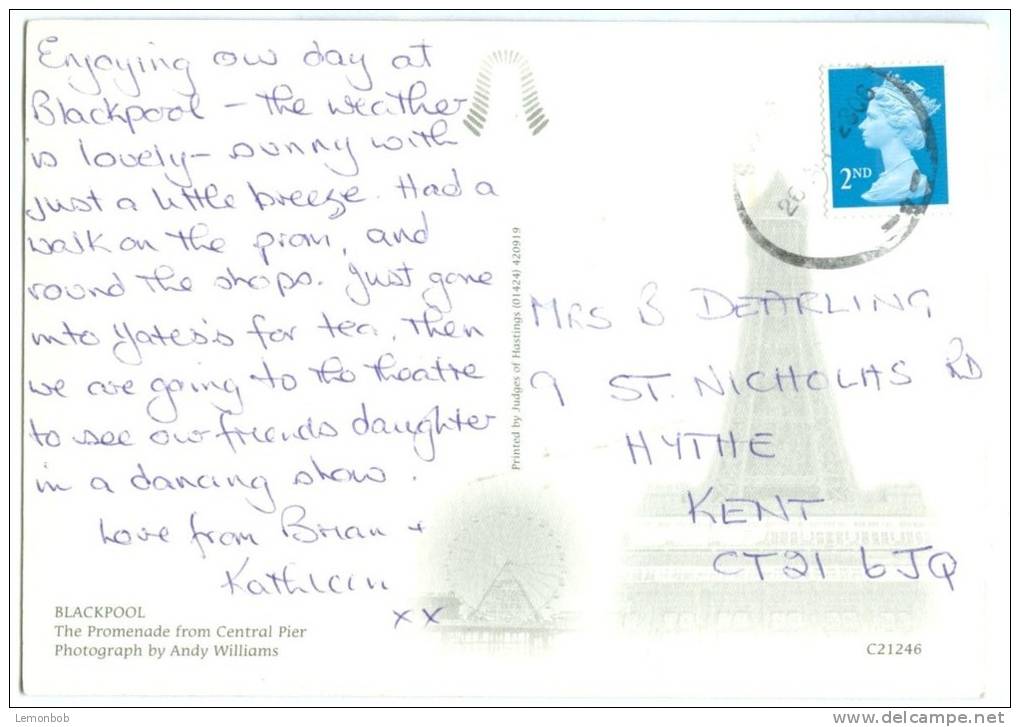 Enjoying our day at
Blackpool – the weather
is lovely – sunny with
just a little breeze. Had a
walk on the prom, and
round the shops. Just gone
into Yates's for tea. Then
we are going to the theatre
to see our friends daughter
in a dancing show.
Love from Brian +
Kathleen
x x
BLACKPOOL
The Promenade from Central Pier
Photograph by Andy Williams
Printed by Judges of Hastings (01424) 420919
2ND
MRS B DEARLING
9 ST. NICHOLAS RD
HYTHE
KENT
CT21 6JQ
C21246
Lemonbob
www.delcampe.net